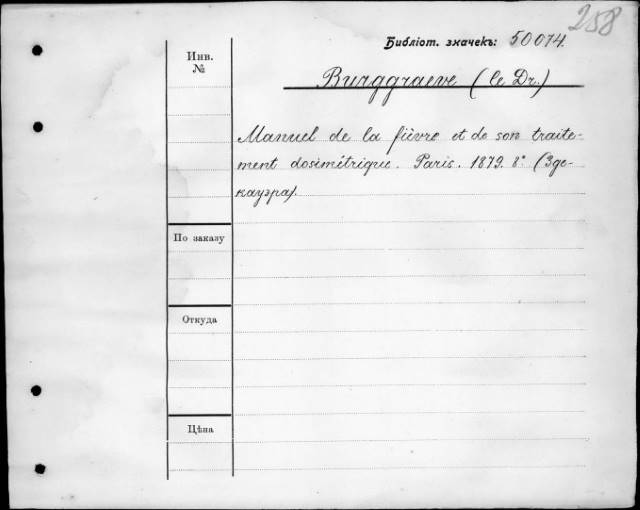 258
Библіот. значекъ: 50074.
Инв.
№
Burggraeve (le Dr.)
Manuel de la fièvre et de son traite-
ment dosimétrique. Paris. 1879. 8°. (Зде-
кауэра).
По заказу
Откуда
Цѣна